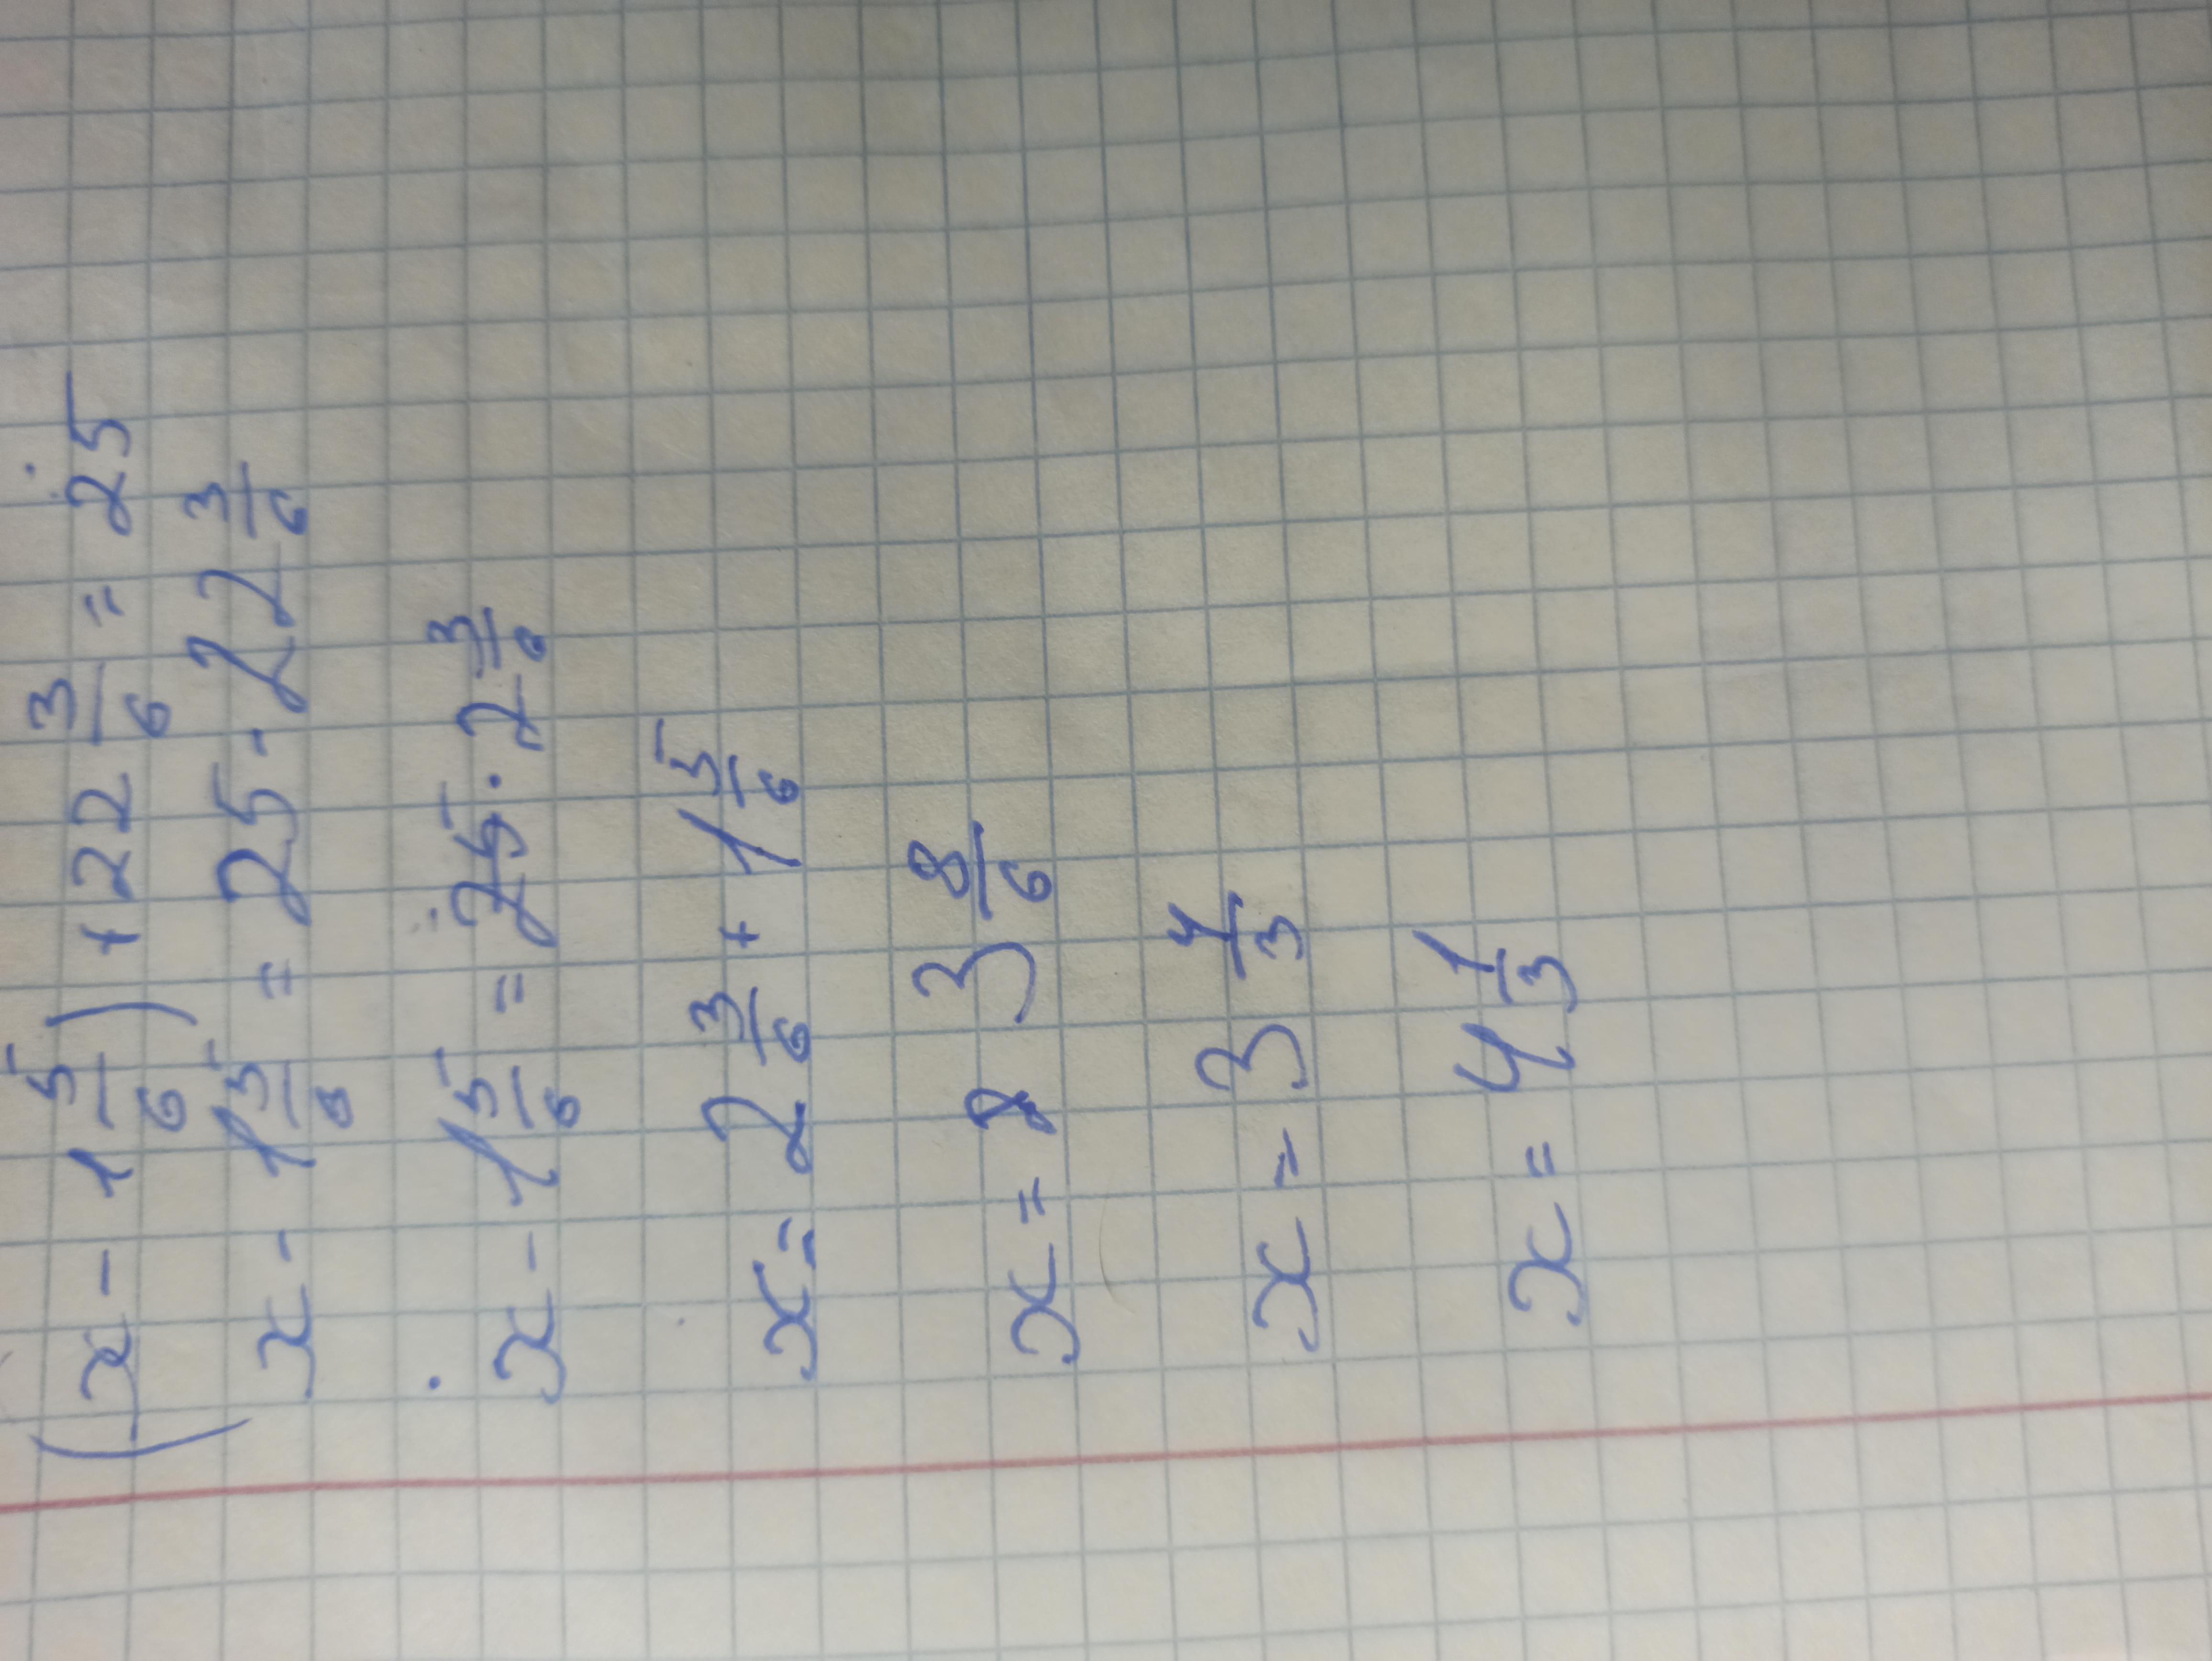 (x - 1 5/6) + 22 3/6 = 25
x - 1 5/6 = 25 - 22 3/6
x - 1 5/6 = 2 3/6
x = 2 3/6 + 1 5/6
x = 3 8/6
x = 3 4/3
x = 4 1/3